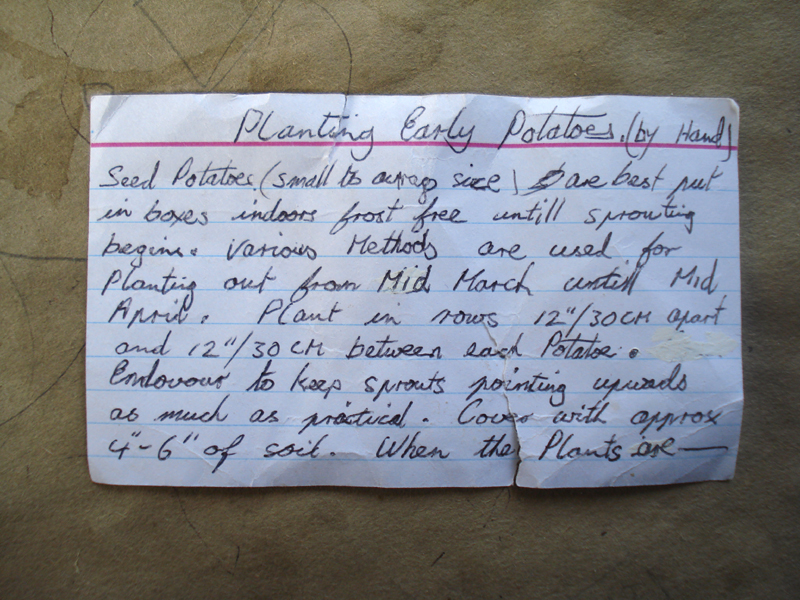 Planting Early Potatoes. (by Hand)
Seed Potatoes (small to averag size) are best put
in boxes indoors frost free untill sprouting
begins. Various Methods are used for
Planting out from Mid March untill Mid
April. Plant in rows 12"/30CM apart
and 12"/30CM between each Potatoe.
Endovour to keep sprouts pointing upwards
as much as practical. Cover with approx
4"-6" of soil. When the Plants are —